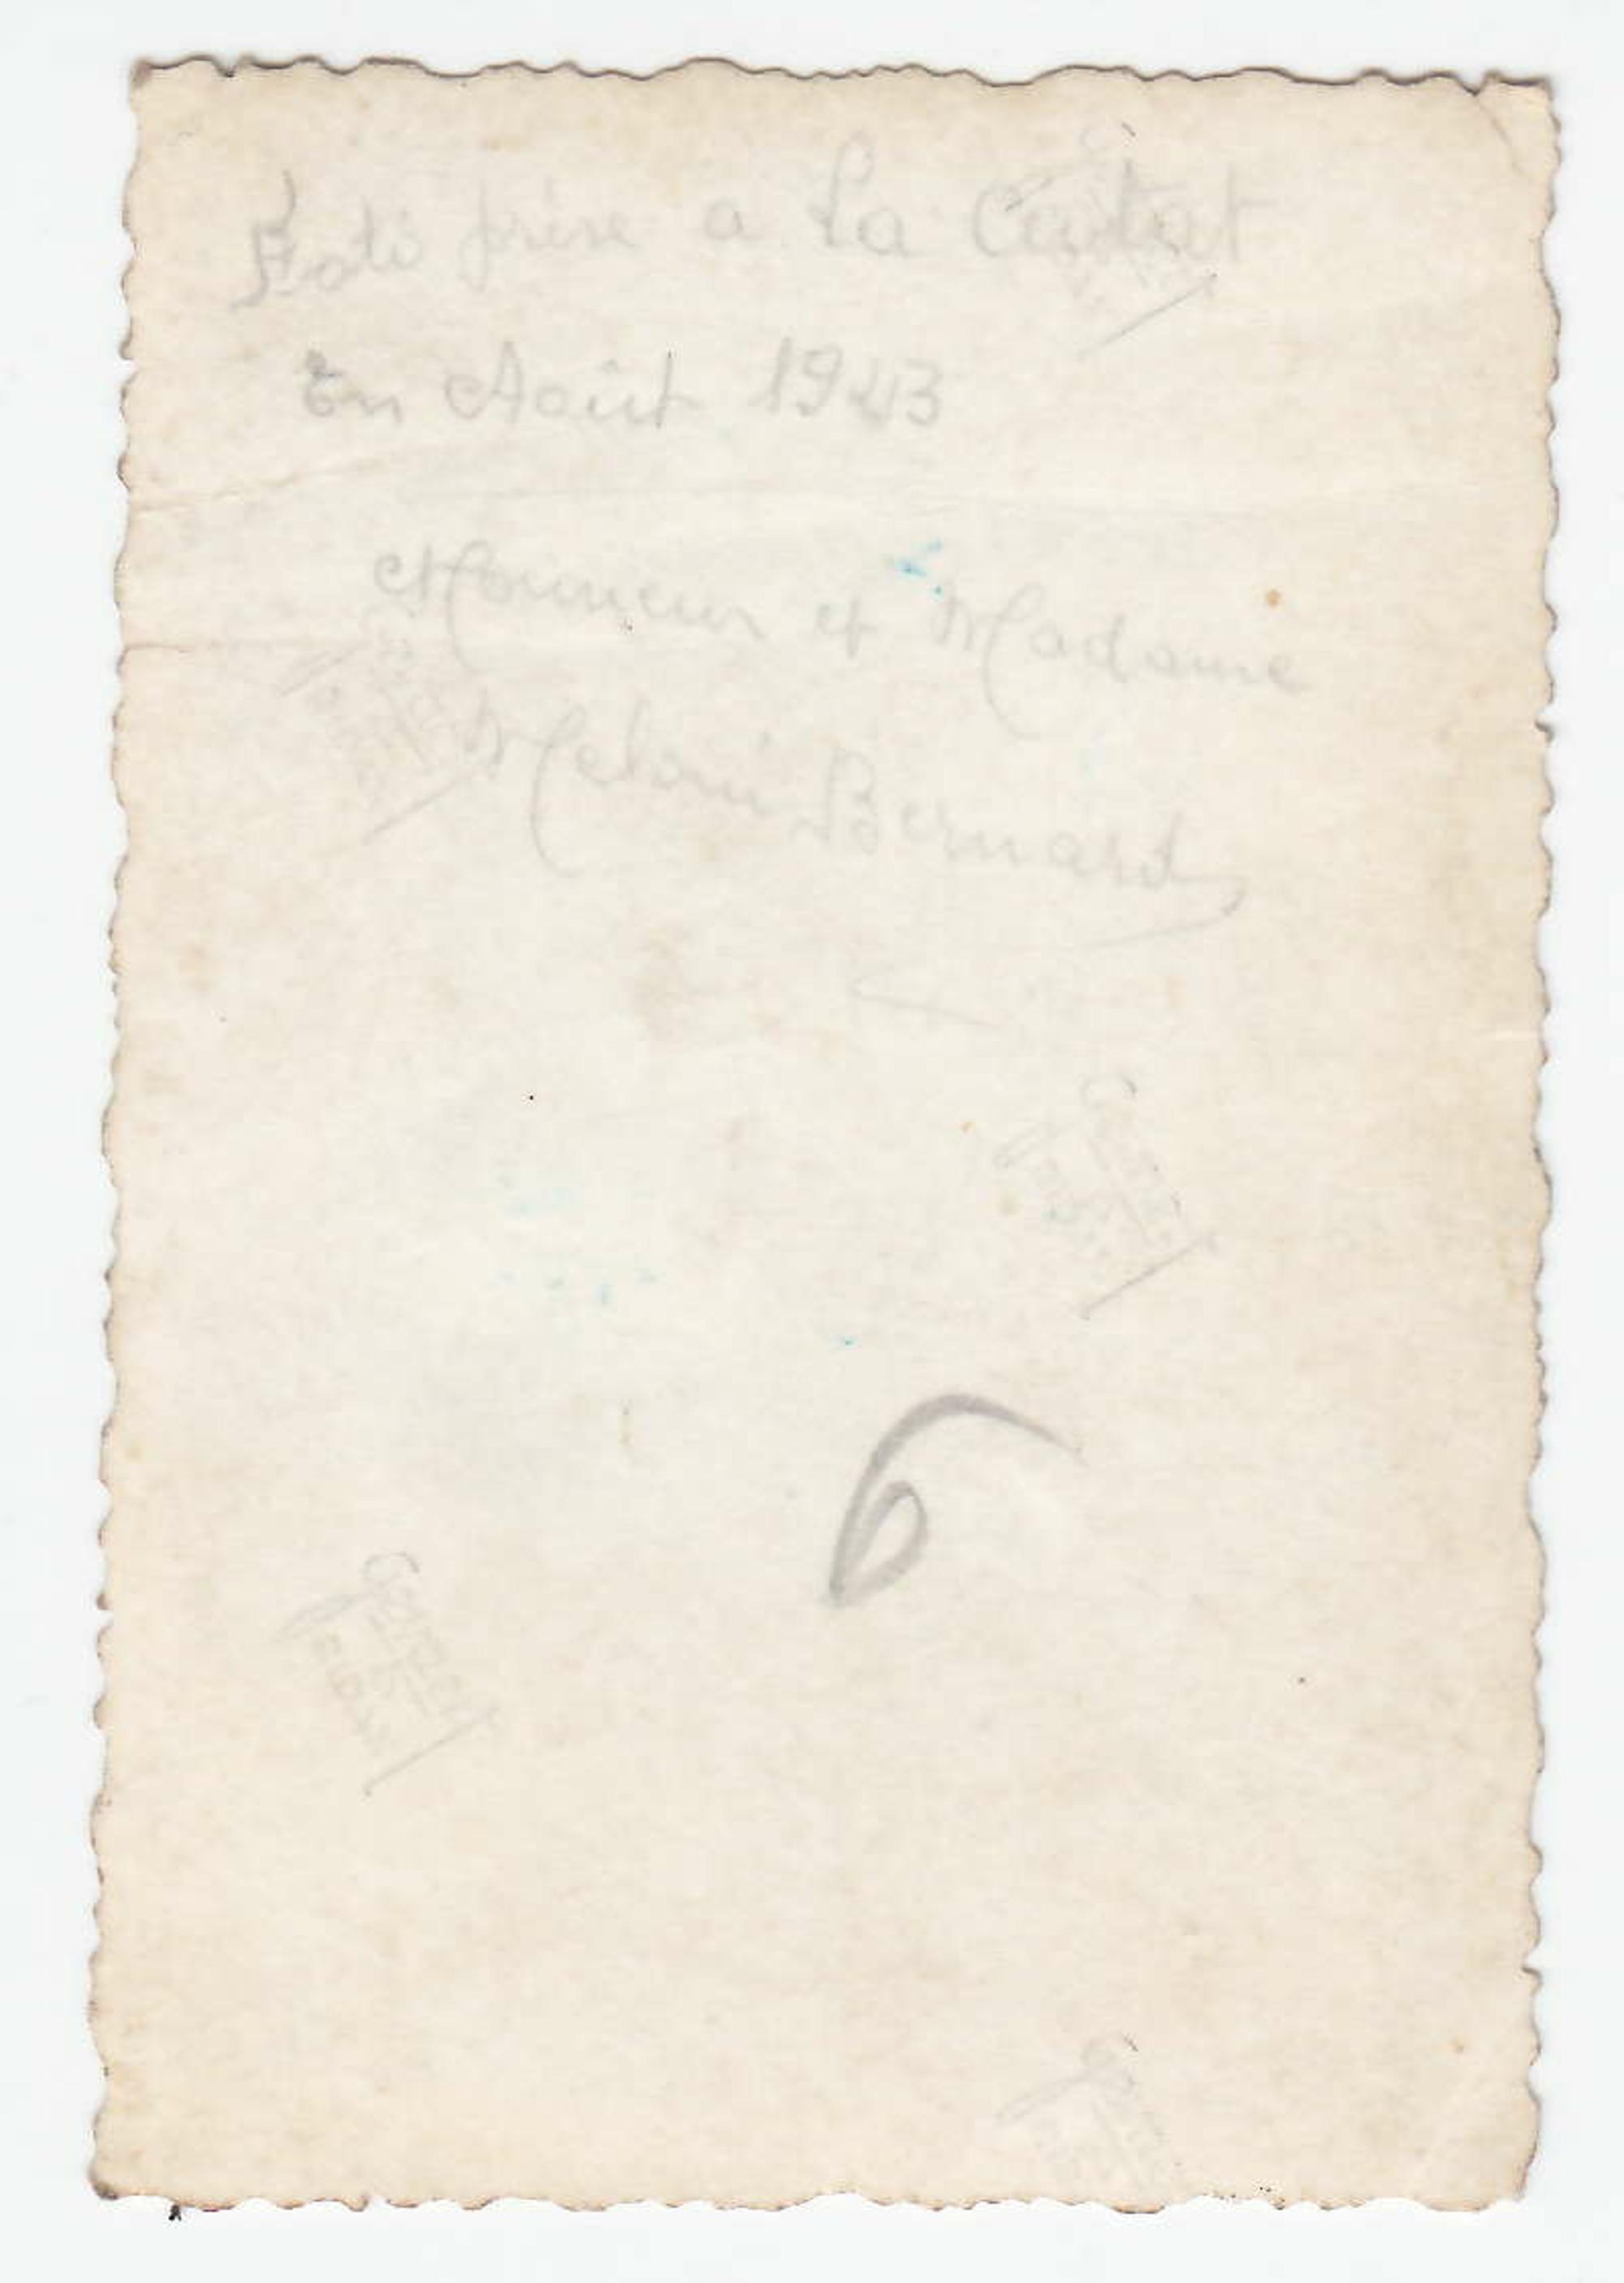 Foto prise a La Ciotat
En Août 1943
Monsieur et Madame
Meloni Bernard
6